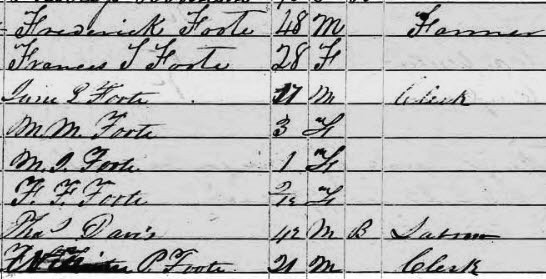 Frederick Foote 48 M Farmer
Frances S Foote 28 F
P Foote 17 M Clerk
M M Foote 3 F
M. I. Foote 1 F
F. F. Foote 2/12 F
Thos S Davis 42 M B
P. Foote 21 M Clerk